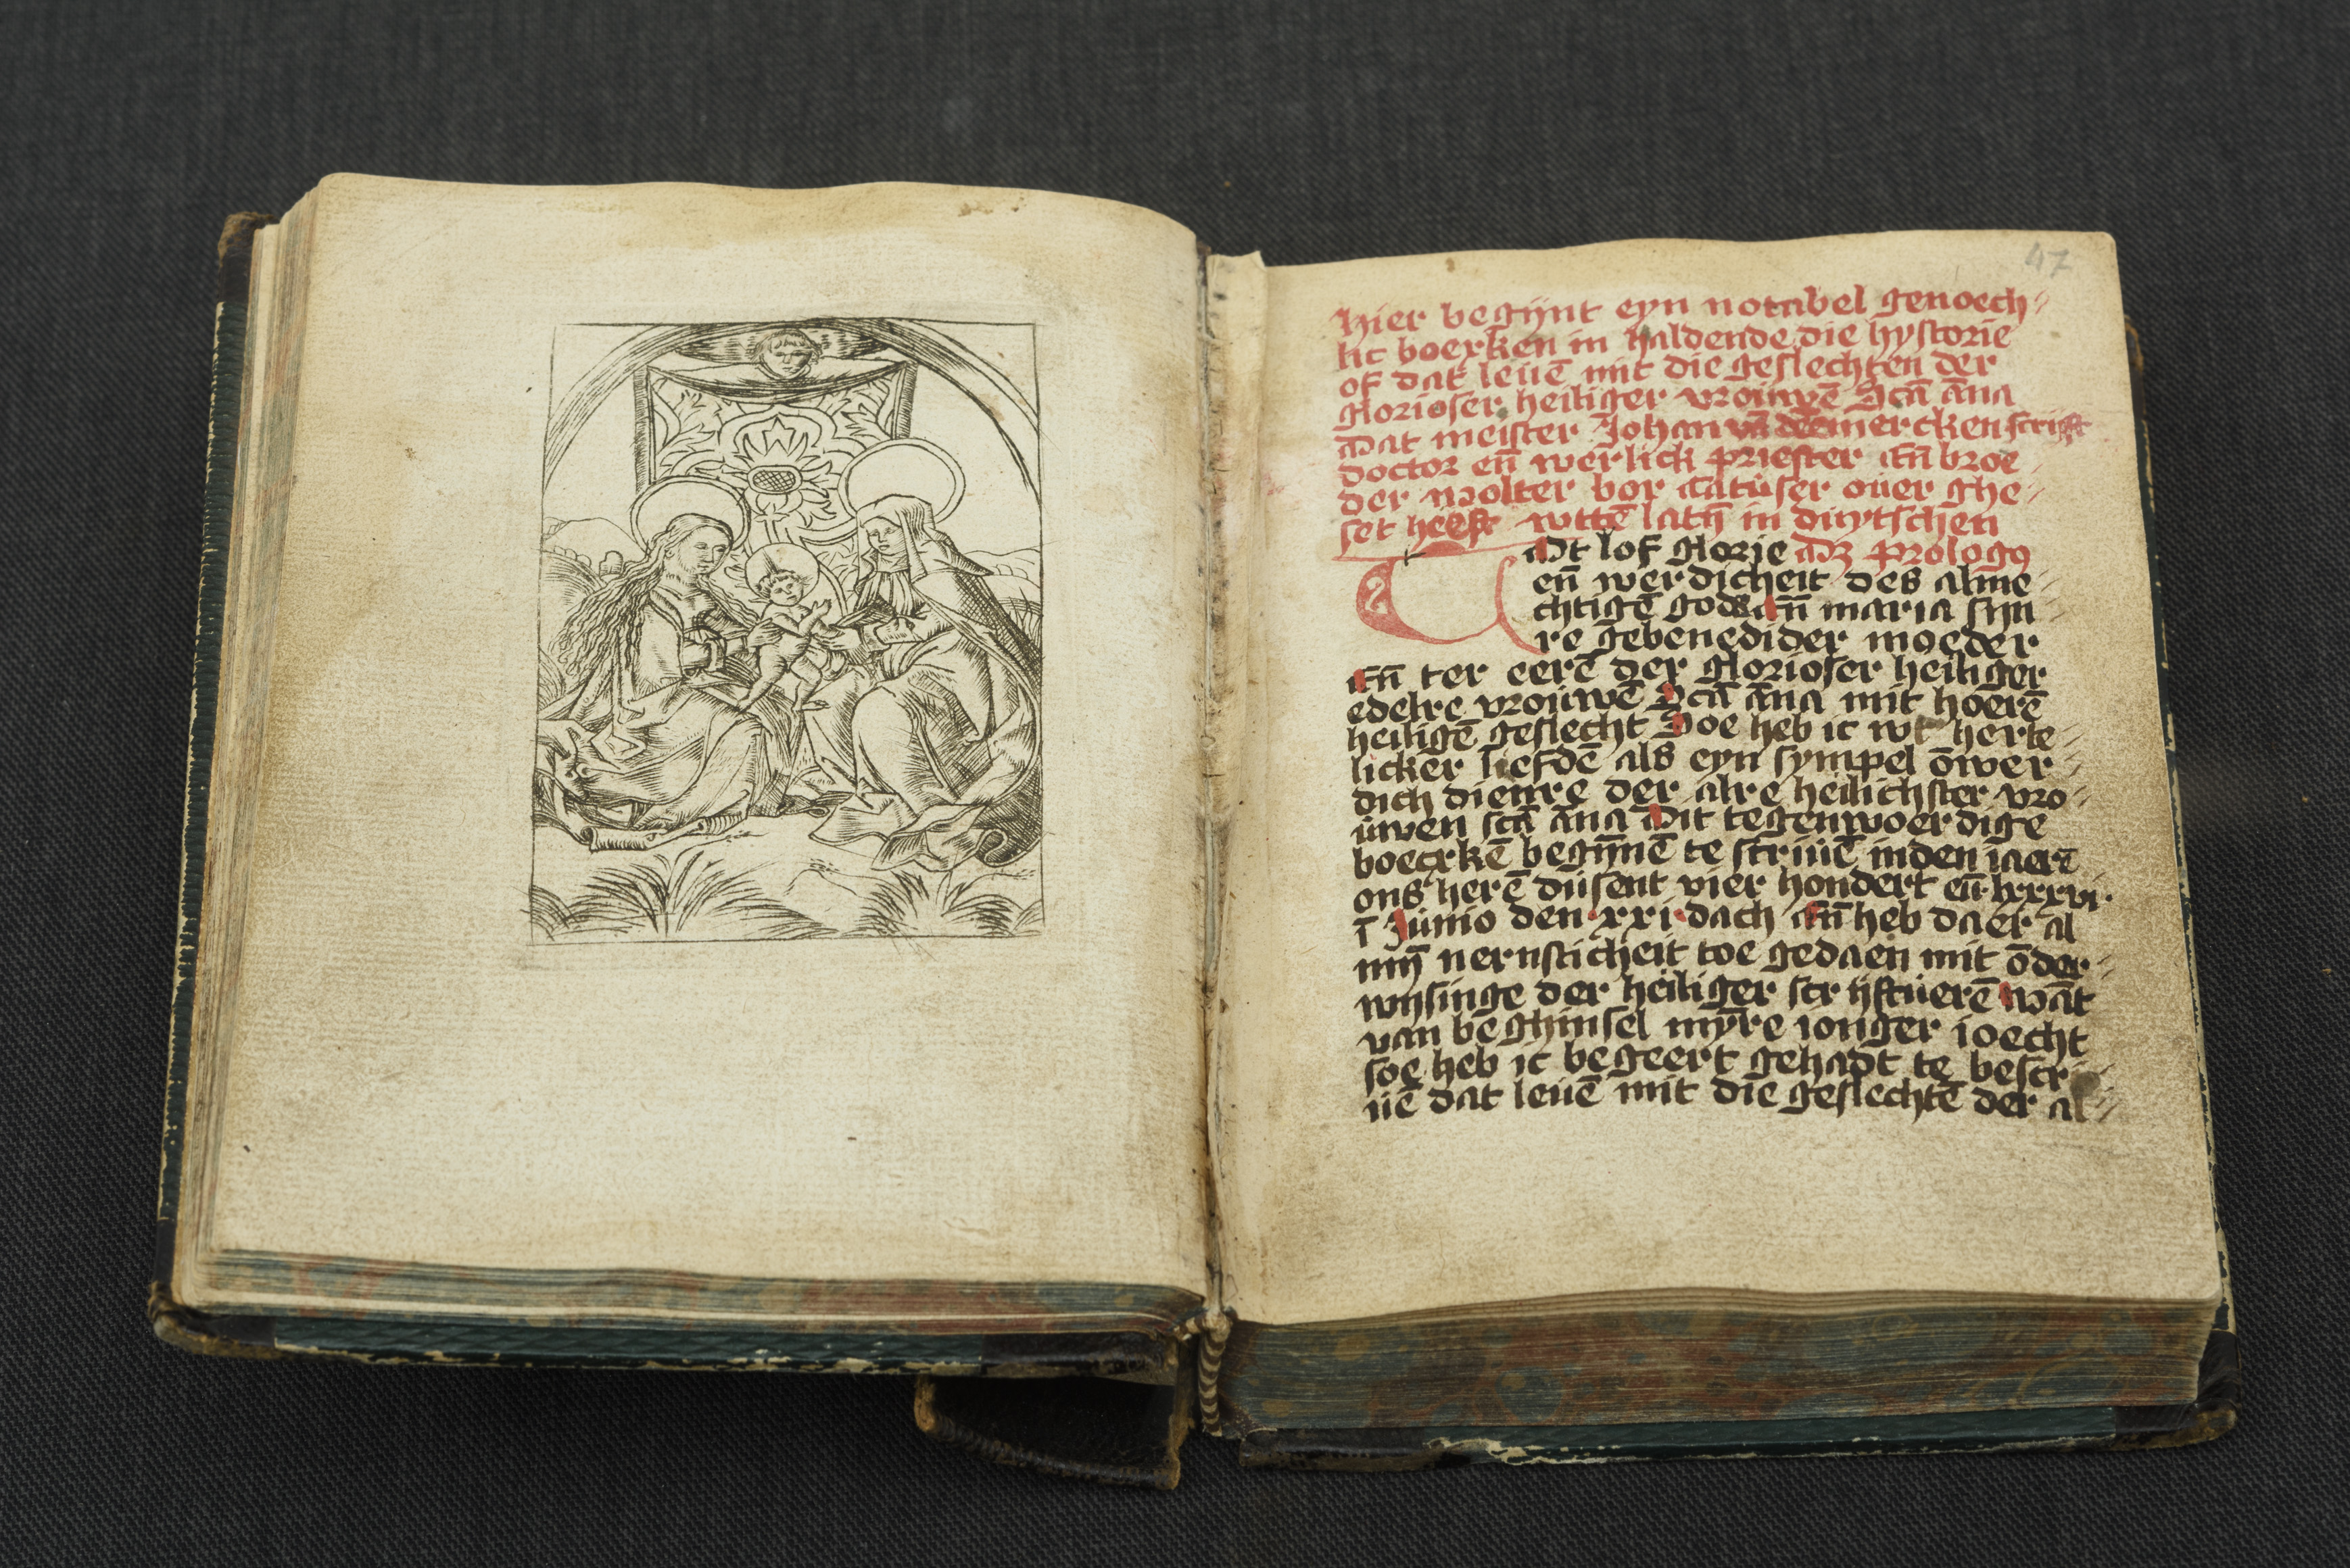 47
Hier begÿnt eyn notabel genoech
lic boexken in haldende die hystorie
of dat leuē mit die geslechten der
glorioser heiliger vrouwē Scā āna
Dat meister Johan vā dēmercken script
doctor en̄ werlick priester en̄ broe
der wolter bor Catuser ouer ghe
set heeft wttē latÿ in duytschen
Ot lof glorie
en̄ werdicheit des alme
chtigē gods en̄ maria syn
re gebenedider moeder
en̄ ter eerē der glorioser heiliger
edelre vrouwē Scā āna mit hoerē
heiligē geslecht Soe heb ic wt herte
licker liefdē als eyn sympel ōwer
dich dienre der alre heilichster vro
uwen scā āna Dit tegenwoerdige
boecxkē begÿnē te scriuē inden iaerē
ons herē dusent vier hondert en̄ lxxxvi
ī Junio den xxi dach en̄ heb daer al
mÿ nernsticheit toe gedaen mit ōder
wysinge der heiliger scriftuerē wāt
van beghinsel mÿre ionger ioecht
soe heb ic begeert gehadt te bescr
uē dat leuē mit die geslechtē der al